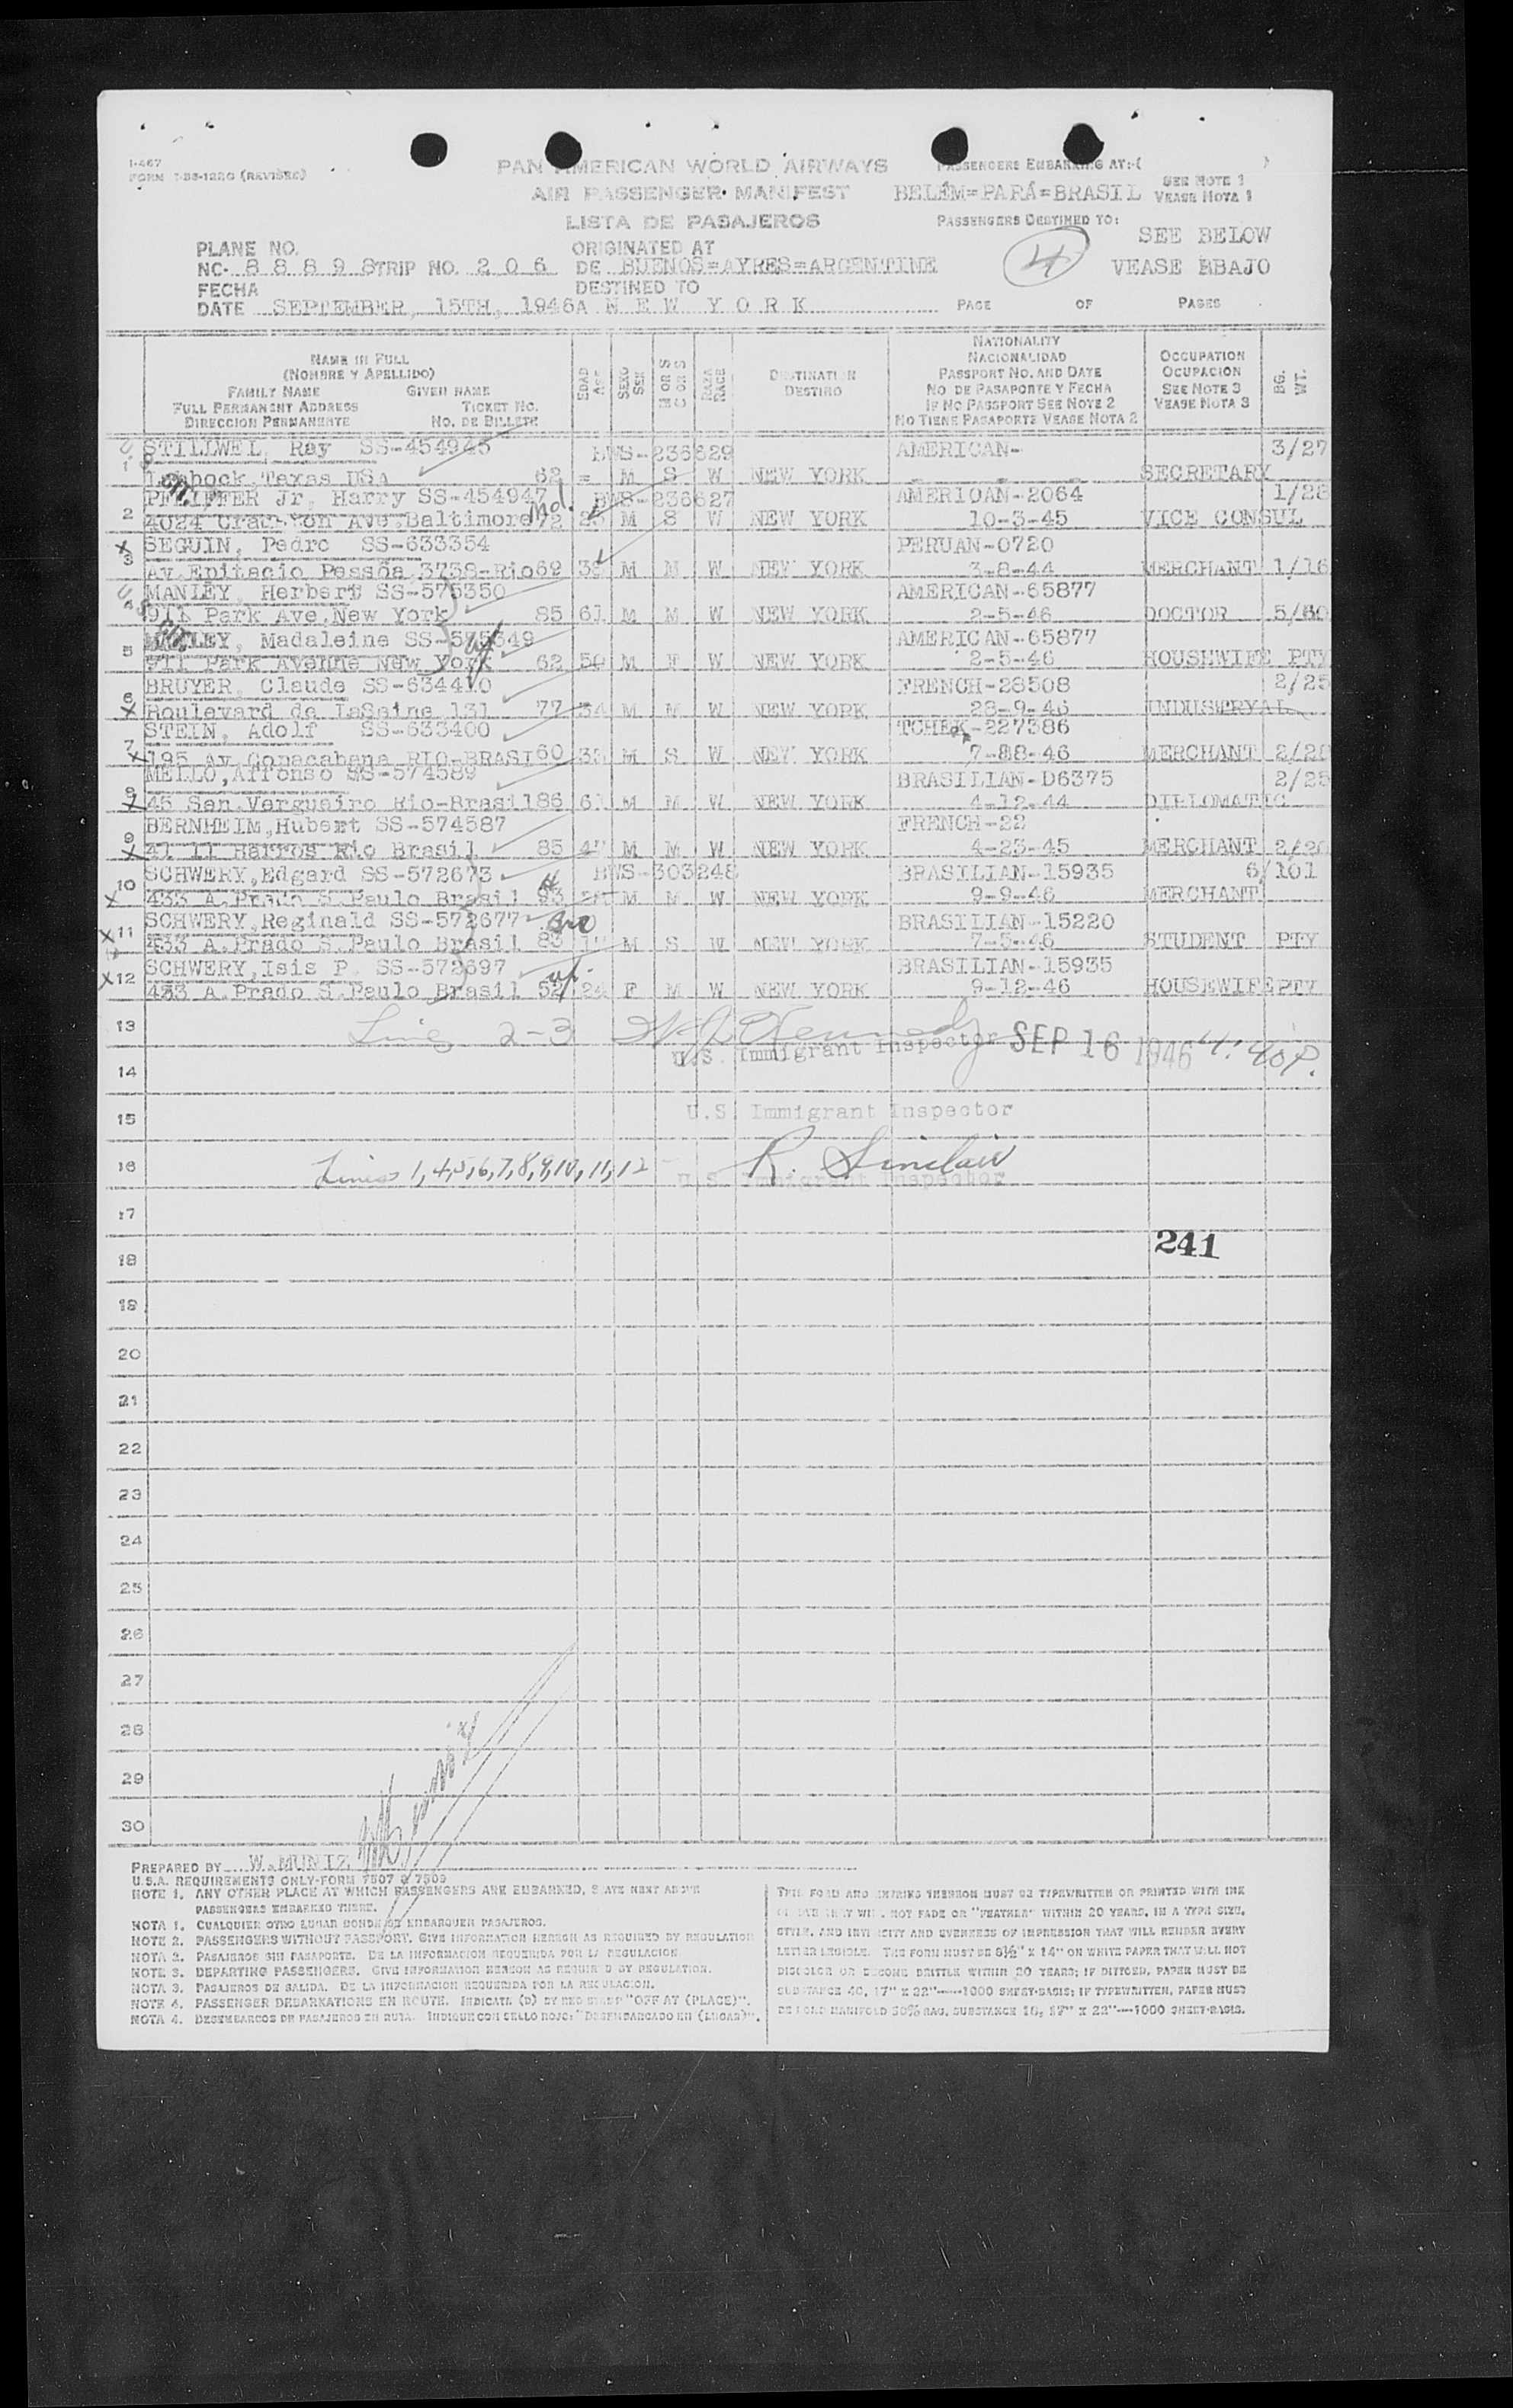 I-467
FORM T-BS-122G (REVISED)
PAN AMERICAN WORLD AIRWAYS
AIR PASSENGER MANIFEST
LISTA DE PASAJEROS
PASSENGERS EMBARKING AT:-( )
BELÉM=PARÁ=BRASIL
SEE NOTE 1
VEASE NOTA 1
PASSENGERS DESTINED TO:
SEE BELOW
VEASE ABAJO
4
PLANE NO.
NC- 8 8 8 9 8 TRIP NO. 2 0 6
ORIGINATED AT
DE BUENOS=AYRES=ARGENTINE
FECHA
DATE SEPTEMBER, 15TH, 1946
DESTINED TO
A N E W Y O R K
PAGE OF PAGES
NAME IN FULL
(NOMBRE Y APELLIDO)
FAMILY NAME GIVEN NAME
FULL PERMANENT ADDRESS TICKET NO.
DIRECCION PERMANENTE NO. DE BILLETE
EDAD
AGE
SEXO
SEX
M OR S
C OR S
RAZA
RACE
DESTINATION
DESTINO
NATIONALITY
NACIONALIDAD
PASSPORT NO. AND DATE
NO DE PASAPORTE Y FECHA
IF NO PASSPORT SEE NOTE 2
NO TIENE PASAPORTE VEASE NOTA 2
OCCUPATION
OCUPACION
SEE NOTE 3
VEASE NOTA 3
BG.
WT.
STILLWEL, Ray SS-454945 BWS-236629 AMERICAN- 3/27
1 Lubbock, Texas USA 62 = M S W NEW YORK - - - SECRETARY
PFEIFFER Jr, Harry SS-454947 BWS-236627 AMERICAN-2064 1/28
2 4024 Ave, Baltimore Md. 72 M S W NEW YORK 10-3-45 VICE CONSUL
X SEGUIN, Pedro SS-633354 PERUAN-0720
3 Av. Epitacio Pessôa, 3738-Rio 62 M M W NEW YORK 3-8-44 MERCHANT 1/16
MANLEY, Herbert SS-575350 AMERICAN-65877
911 Park Ave, New York 85 61 M M W NEW YORK 2-5-46 DOCTOR
MANLEY, Madaleine SS-575349 AMERICAN-65877
5 911 Park Avenue New York 62 50 M F W NEW YORK 2-5-46 HOUSEWIFE PTY
BRUYER, Claude SS-634410 FRENCH-28508 2/25
6 X Boulevard de LaSeine 131 77 34 M M W NEW YORK 28-9-45 INDUSTRYAL
STEIN, Adolf SS-633400 TCHEK-227386
7 X 195 Av Copacabana RIO-BRASI 60 M S W NEW YORK 7-88-46 MERCHANT 2/28
MELLO, Affonso SS-574589 BRASILIAN-D6375 2/25
8 X 45 Sen. Verguairo Rio-Brasil 86 61 M M W NEW YORK 4-12-44 DIPLOMATIC
BERNHEIM, Hubert SS-574587 FRENCH-22
9 X 41 Barros Rio Brasil 85 47 M M W NEW YORK 4-23-45 MERCHANT
SCHWERY, Edgard SS-572673 BWS-303248 BRASILIAN-15935 6/101
10 X 433 A. Prado S. Paulo Brasil 93 M M W NEW YORK 9-9-46 MERCHANT
SCHWERY, Reginald SS-572677 BRASILIAN-15220
X 11 433 A. Prado S. Paulo Brasil 83 M S W NEW YORK 7-5-46 STUDENT PTY
SCHWERY, Isis P. SS-572697 BRASILIAN-15935
X 12 433 A. Prado S. Paulo Brasil 52 24 F M W NEW YORK 9-12-46 HOUSEWIFE PTY
13 Lines 2-3 Kennedy
U.S. Immigrant Inspector SEP 16 1946 4:40P.
14
15 U.S. Immigrant Inspector
16 Lines 1,4,5,6,7,8,9,10,11,12 R. Sinclair
U.S. Immigrant Inspector
17
241
18
19
20
21
22
23
24
25
26
27
28
29
30
PREPARED BY W. MUNIZ
U.S.A. REQUIREMENTS ONLY-FORM 7507 & 7509
NOTE 1. ANY OTHER PLACE AT WHICH PASSENGERS ARE EMBARKED, STATE NEXT ABOVE
PASSENGERS EMBARKED THERE.
NOTA 1. CUALQUIER OTRO LUGAR DONDE SE EMBARQUEN PASAJEROS.
NOTE 2. PASSENGERS WITHOUT PASSPORT. GIVE INFORMATION HEREON AS REQUIRED BY REGULATION
NOTA 2. PASAJEROS SIN PASAPORTE. DE LA INFORMACION REQUERIDA POR LA REGULACION
NOTE 3. DEPARTING PASSENGERS. GIVE INFORMATION HEREON AS REQUIRED BY REGULATION.
NOTA 3. PASAJEROS DE SALIDA. DE LA INFORMACION REQUERIDA POR LA REGULACION.
NOTE 4. PASSENGER DEBARKATIONS EN ROUTE. INDICATE (D) BY RED STAMP "OFF AT (PLACE)".
NOTA 4. DESEMBARCOS DE PASAJEROS EN RUTA. INDIQUE CON SELLO ROJO: "DESEMBARCADO EN (LUGAR)".
THIS FORM AND ENTRIES THEREON MUST BE TYPEWRITTEN OR PRINTED WITH INK
OR DYE THAT WILL NOT FADE OR "FEATHER" WITHIN 20 YEARS, IN A TYPE SIZE,
STYLE, AND INTENSITY AND EVENNESS OF IMPRESSION THAT WILL RENDER EVERY
LETTER LEGIBLE. THE FORM MUST BE 8½" X 14" ON WHITE PAPER THAT WILL NOT
DISCOLOR OR BECOME BRITTLE WITHIN 20 YEARS; IF DITTOED, PAPER MUST BE
SUBSTANCE 40, 17" X 22"-----1000 SHEET-BASIS; IF TYPEWRITTEN, PAPER MUST
BE BOND MANIFOLD 50% RAG, SUBSTANCE 16, 17" X 22"----1000 SHEET-BASIS.